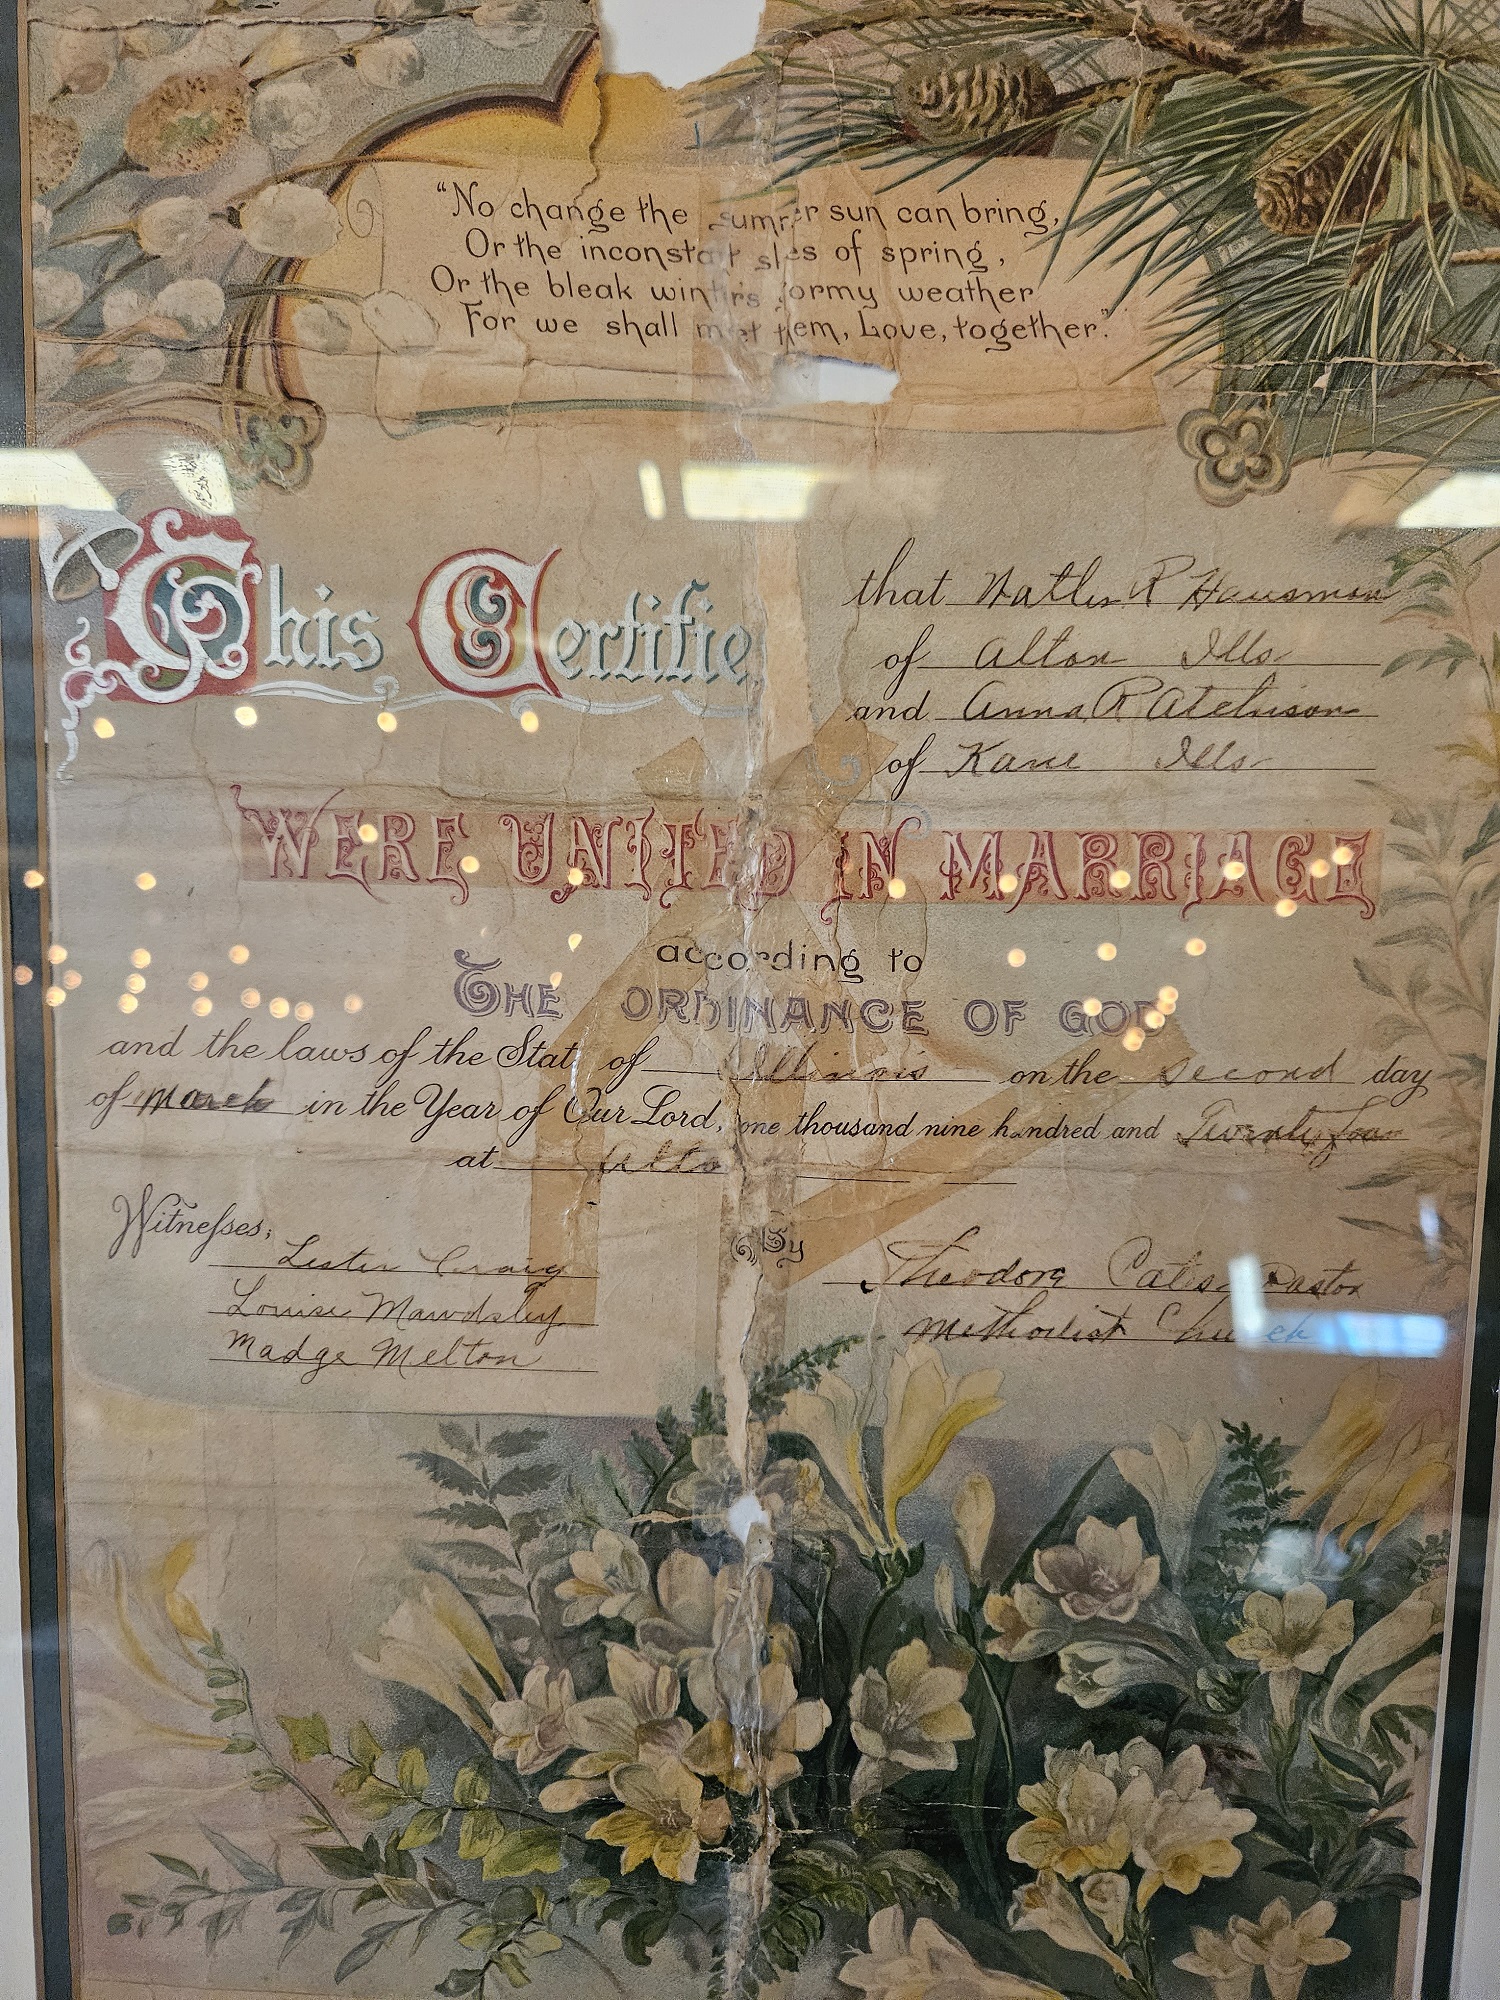 "No change the summer sun can bring,
Or the inconstant skies of spring,
Or the bleak winters stormy weather
For we shall meet them, Love, together."
This Certifie
that R Hausman
of Alton Ills
and Anna R Atchison
of Kane Ills
WERE UNITED IN MARRIAGE
according to
THE ORDINANCE OF GOD
and the laws of the State of Illinois on the second day
of March in the Year of Our Lord, one thousand nine hundred and Twenty four
at Alto
Witnesses;
By
Lester Craig
Theodore Cates Pastor
Louise Mawdsley
Methodist Church
Madge Melton